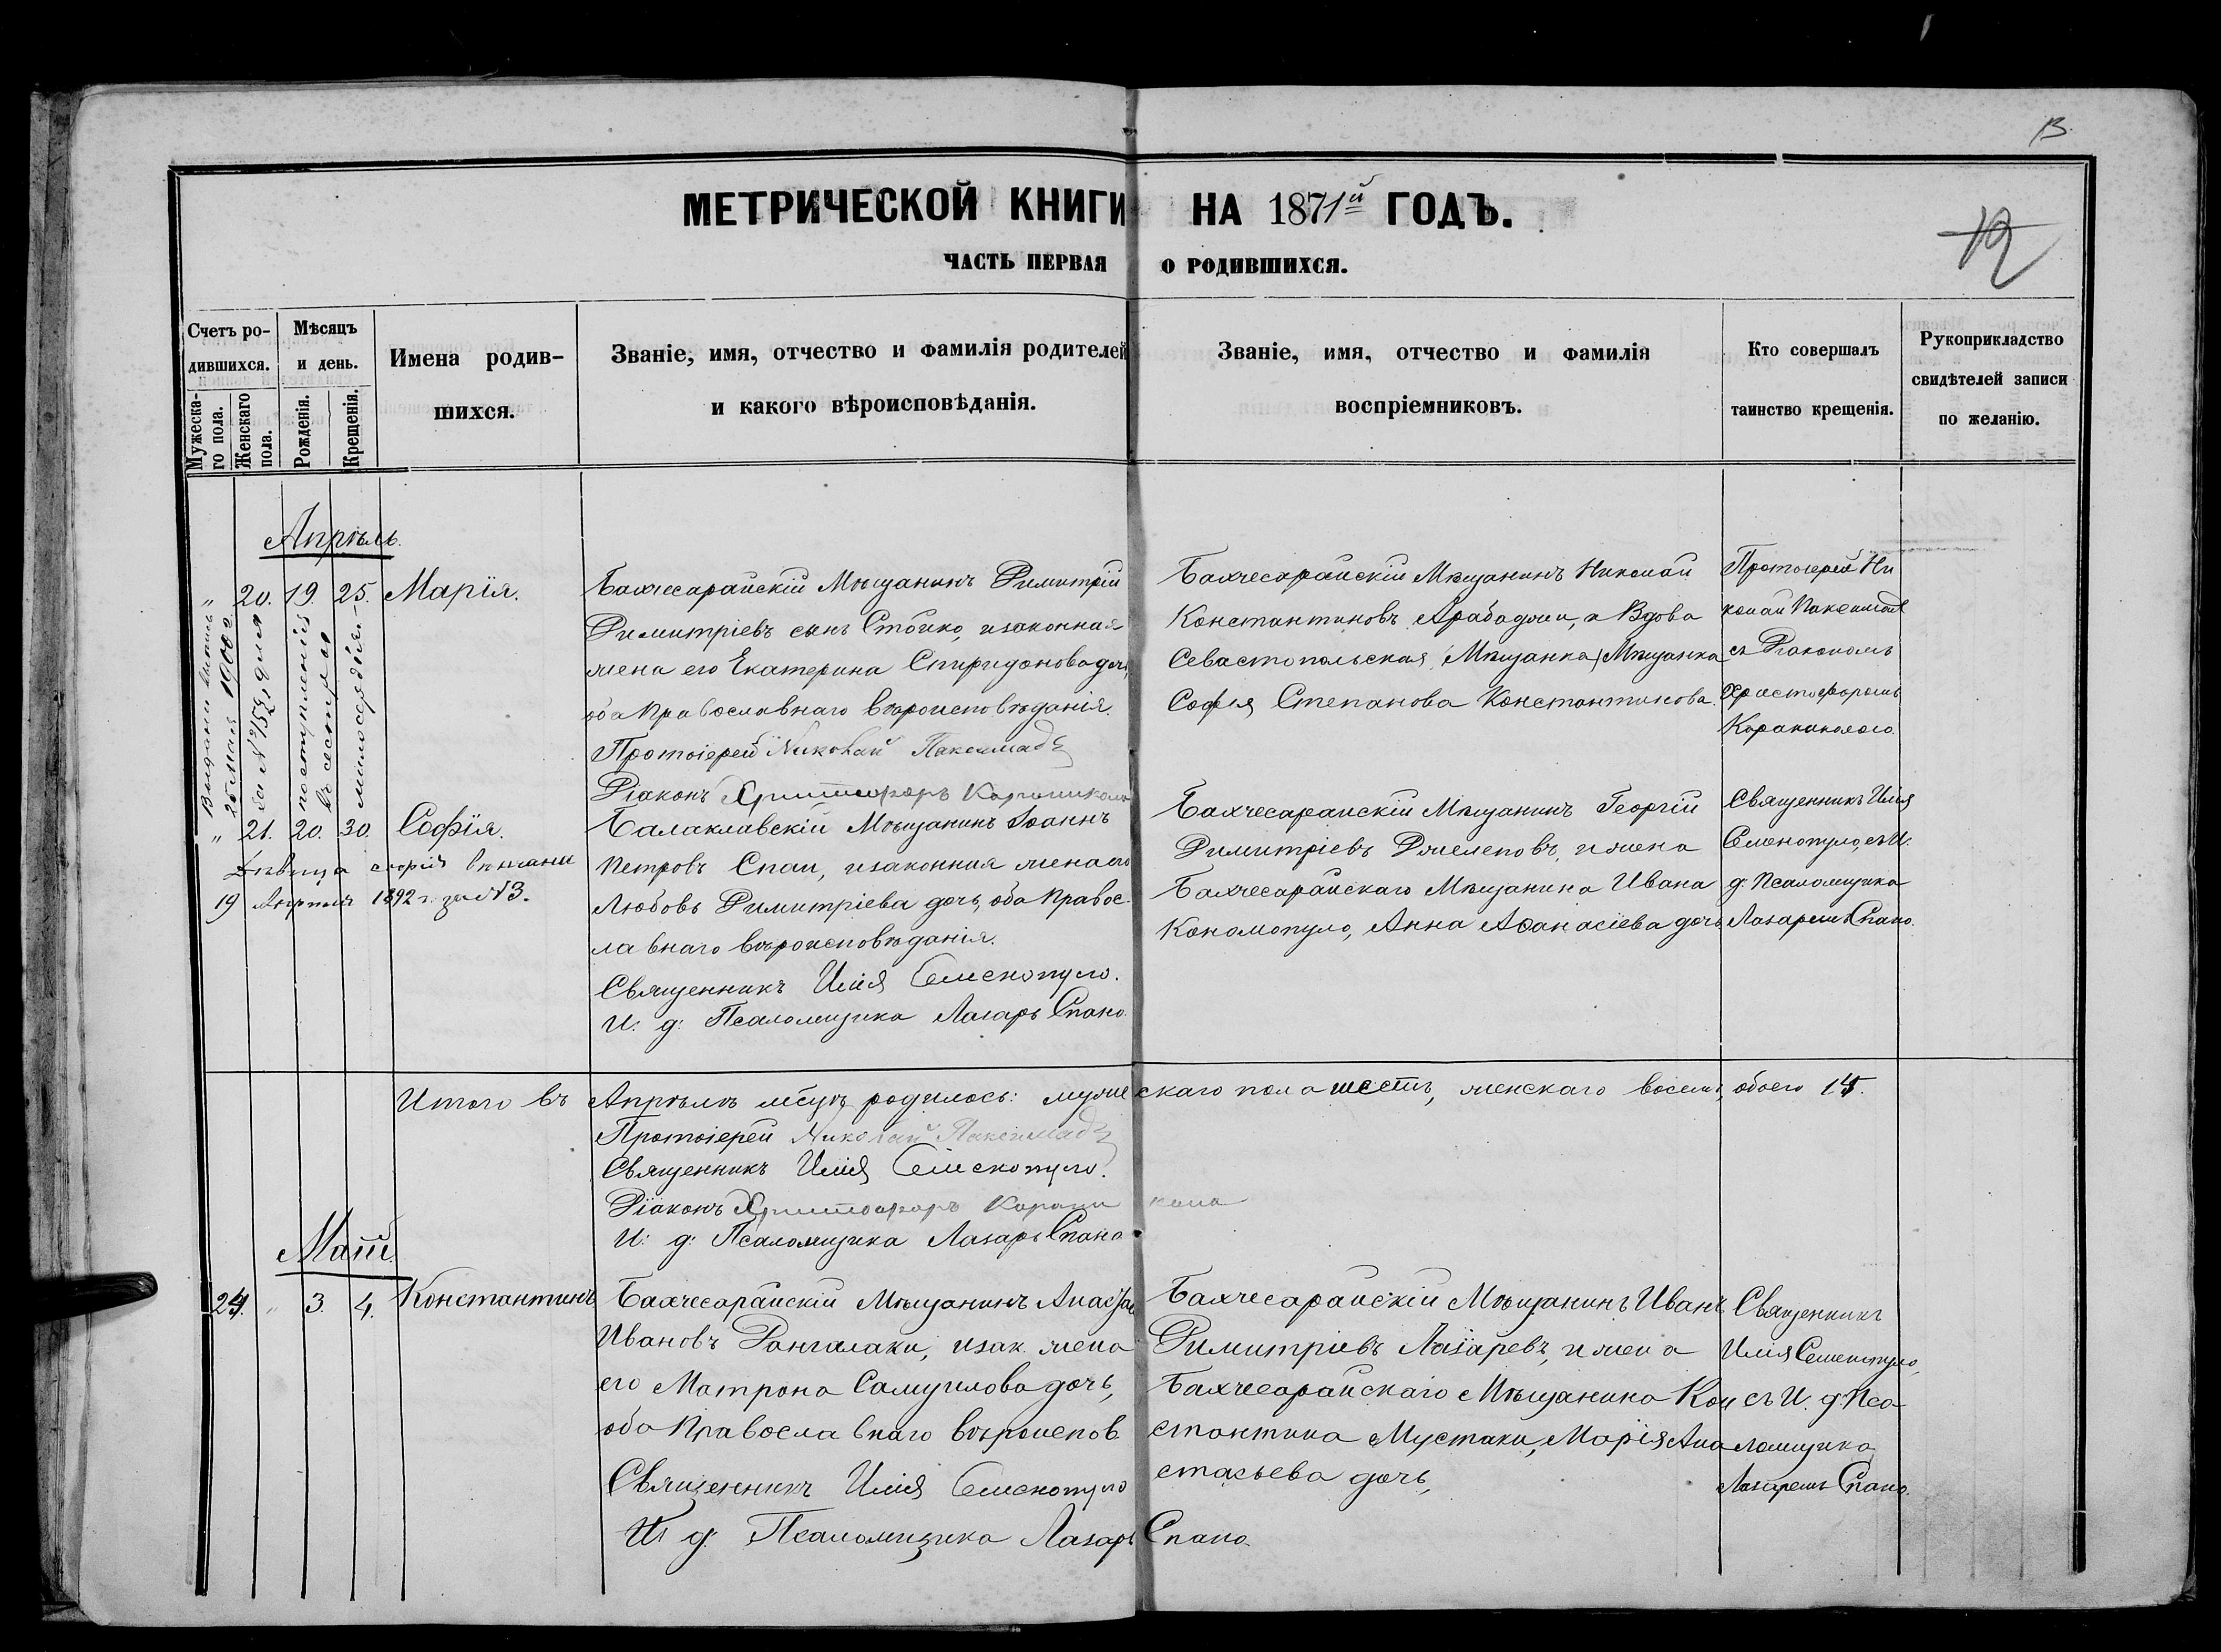 13.
МЕТРИЧЕСКОЙ КНИГИ НА 1871й ГОДЪ.
12
ЧАСТЬ ПЕРВАЯ О РОДИВШИХСЯ.
Счетъ родившихся.
Мужескаго пола.
Женскаго пола.
Мѣсяцъ и день.
Рожденія.
Крещенія.
Имена родившихся.
Званіе, имя, отчество и фамилія родителей
и какого вѣроисповѣданія.
Званіе, имя, отчество и фамилія
воспріемниковъ.
Кто совершалъ
таинство крещенія.
Рукоприкладство
свидѣтелей записи
по желанію.
Апрѣль.
" 20. 19. 25. Марія.
Бахчесарайскій Мѣщанинъ Димитрій
Димитріевъ сынъ Стойко, изаконная
жена его Екатерина Спиридонова дочь,
оба Православнаго вѣроисповѣданія.
Протоіерей Николай Паксимадъ
Діаконъ Христофоръ
Бахчесарайскій Мѣщанинъ Николай
Константиновъ Арабаджи, и Вдова
Севастопольская Мѣщанка Мѣщанка
Софія Степанова Константинова.
Протоіерей Ни
колай Паксимадъ
съ Діакономъ
Христофоромъ
Караниколого.
25 мая 1900 г.
за № 152 для
поступленія
въ сестры
милосердія
" 21. 20. 30. Софія.
Дѣвица Софія вѣнчана
19 Апрѣля 1892 г. за № 3.
Балаклавскій Мѣщанинъ Іоаннъ
Петровъ Спаи, изаконная жена его
Любовь Димитріева дочь, оба Правос-
лавнаго вѣроисповѣданія.
Священникъ Илія Семенопуло.
И. д. Псаломщика Лазарь Спано.
Бахчесарайскій Мѣщанинъ Георгій
Димитріевъ Джелеповъ, и жена
Бахчесарайскаго Мѣщанина Ивана
Кономопуло, Анна Аѳанасіева дочь
Священникъ Илія
Семенопуло, съ И.
д. Псаломщика
Лазаремъ Спано.
Итого въ Апрѣлѣ мѣсяцѣ родилось: мужескаго пола шесть, женскаго восемь, обоего 14.
Протоіерей Николай Паксимадъ
Священникъ Илія Семенопуло.
Діаконъ Христофоръ Караникола
И. д. Псаломщика Лазарь Спано
Май.
24. " 3. 4. Константинъ
Бахчесарайскій Мѣщанинъ Анастас
Ивановъ Рангалаки, изак. жена
его Матрона Самуилова дочь,
оба Православнаго вѣроисповѣд.
Священникъ Илія Семенопуло
И. д. Псаломщика Лазарь Спано.
Бахчесарайскій Мѣщанинъ Иванъ
Димитріевъ Лазаревъ, и жена
Бахчесарайскаго Мѣщанина Кон
стантина Мустаки, Марія Ана
стасьева дочь,
Священникъ
Илія Семенопуло,
съ И. д. Пса
ломщика
Лазаремъ Спано.